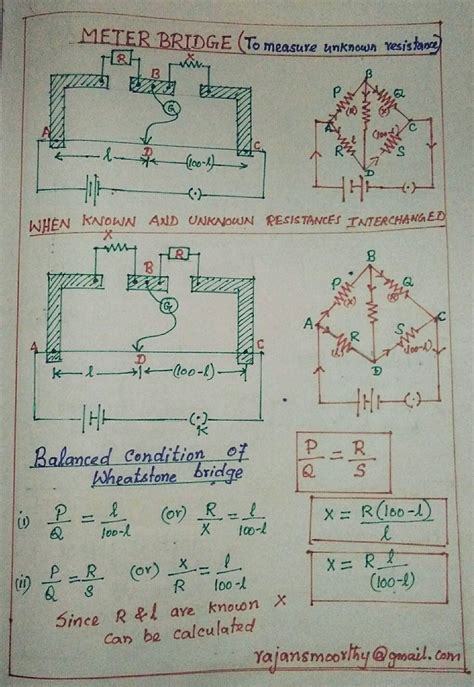 METER BRIDGE (To measure unknown resistance)
R X
B
G
A C
l D (100-l)
B
P Q
A C
R S
(l) (100-l)
D
WHEN KNOWN AND UNKNOWN RESISTANCES INTERCHANGED
X R
B
G
A C
l D (100-l)
K
B
P Q
(X) (R)
A C
R S
(l) (100-l)
D
Balanced condition of
Wheatstone bridge
P/Q = R/S
(i) P/Q = l/100-l (or) R/X = l/100-l
X = R(100-l)/l
(ii) P/Q = R/S (or) X/R = l/100-l
X = R l/(100-l)
Since R & l are known X
can be calculated
rajansmoorthy@gmail.com